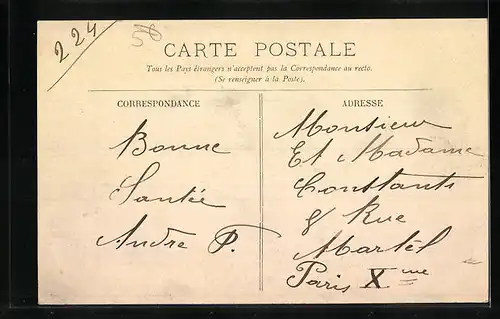 224
56
CARTE POSTALE
Tous les Pays étrangers n'acceptent pas la Correspondance au recto.
(Se renseigner à la Poste).
CORRESPONDANCE
Bonne
Santée
Andre P.
ADRESSE
Monsieur
Et Madame
Constants
8 Rue
Martel
Paris Xme